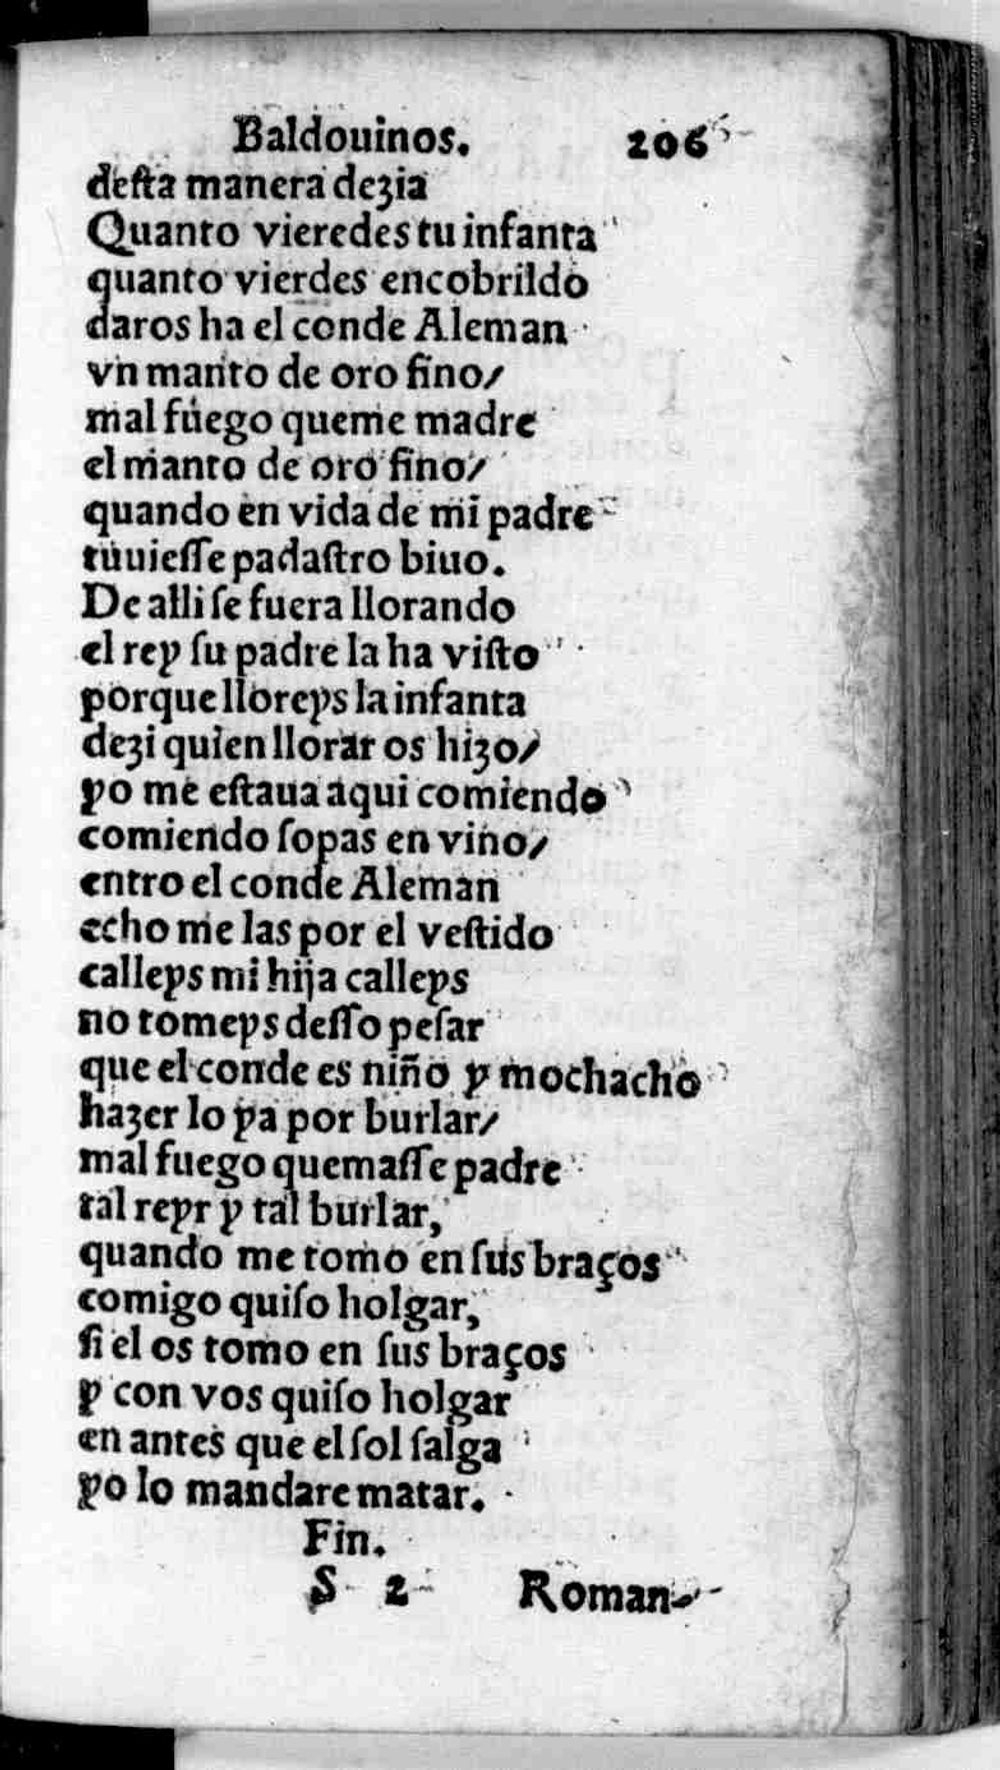 Baldouinos. 206
desta manera dezia
Quanto vieredes tu infanta
quanto vierdes encobrildo
daros ha el conde Aleman
vn manto de oro fino/
mal fuego queme madre
el manto de oro fino/
quando en vida de mi padre
tuuiesse padastro biuo.
De alli se fuera llorando
el rey su padre la ha visto
porque lloreys la infanta
dezi quien llorar os hizo/
yo me estaua aqui comiendo
comiendo sopas en vino/
entro el conde Aleman
echo me las por el vestido
calleys mi hija calleys
no tomeys desso pesar
que el conde es niño y mochacho
hazer lo ya por burlar/
mal fuego quemasse padre
tal reyr y tal burlar,
quando me tomo en sus braços
comigo quiso holgar,
si el os tomo en sus braços
y con vos quiso holgar
en antes que el sol salga
yo lo mandare matar.
Fin.
S 2 Roman-